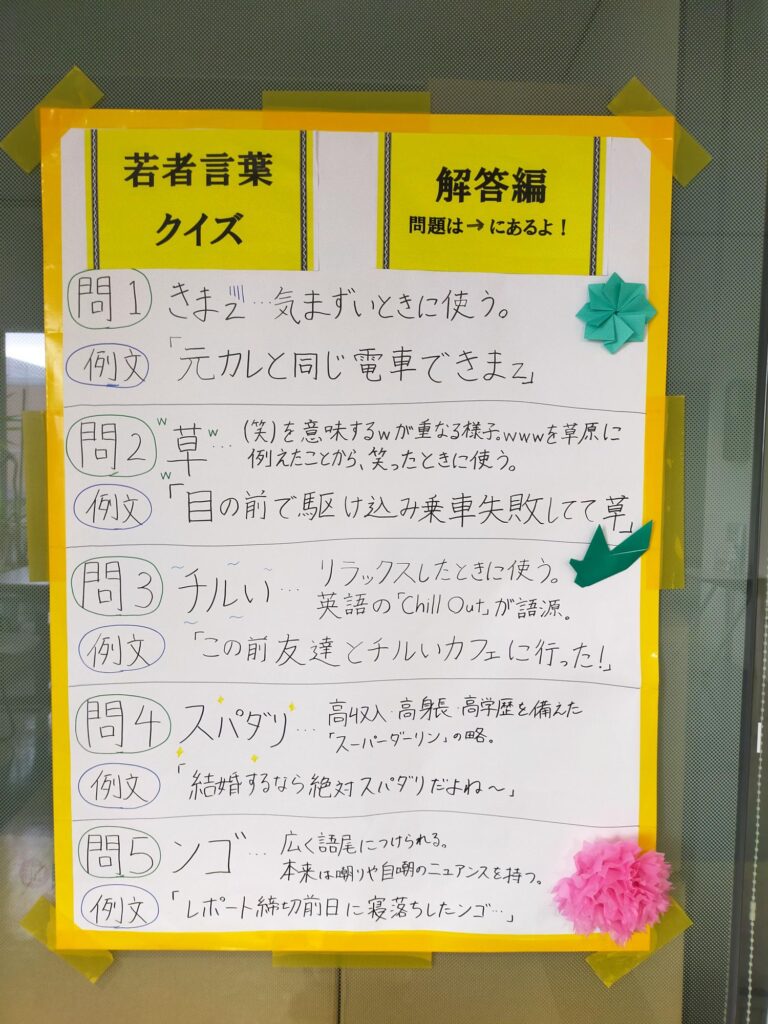 若者言葉
クイズ
解答編
問題は→にあるよ！
問1 きまz…気まずいときに使う。
例文「元カレと同じ電車できまz」
問2 草…(笑)を意味するwが重なる様子。wwwを草原に
w w w
例えたことから、笑ったときに使う。
例文「目の前で駆け込み乗車失敗してて草」
問3 チルい…リラックスしたときに使う。
英語の「Chill Out」が語源。
例文「この前友達とチルいカフェに行った！」
問4 スパダリ…高収入・高身長・高学歴を備えた
「スーパーダーリン」の略。
例文「結婚するなら絶対スパダリだよね～」
問5 ンゴ…広く語尾につけられる。
本来は嘲りや自嘲のニュアンスを持つ。
例文「レポート締切前日に寝落ちしたンゴ…」